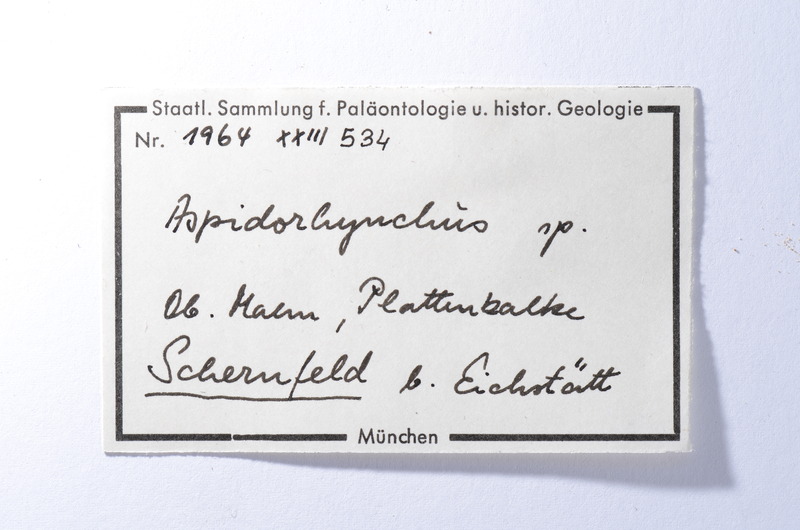 Staatl. Sammlung f. Paläontologie u. histor. Geologie
Nr. 1964 XXIII 534
Aspidorhynchus sp.
Ob. Malm, Plattenkalke
Schernfeld b. Eichstätt
München